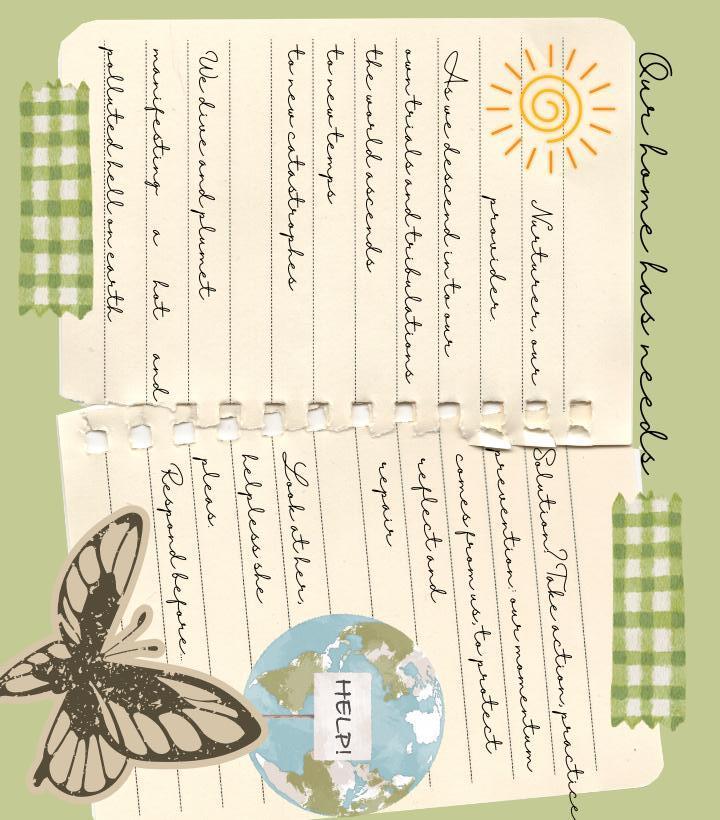 Our home has needs
Nurturer, our
provider.
As we descend into our
own trials and tribulations
the world ascends
to new temps
to new catastrophes
We dive and plumet
manifesting a hot and
polluted hell on earth
Solution? Take action, practice
prevention: our momentum
comes from us, to protect
reflect and
repair
Look at her,
helpless she
pleas
Respond before..
HELP!